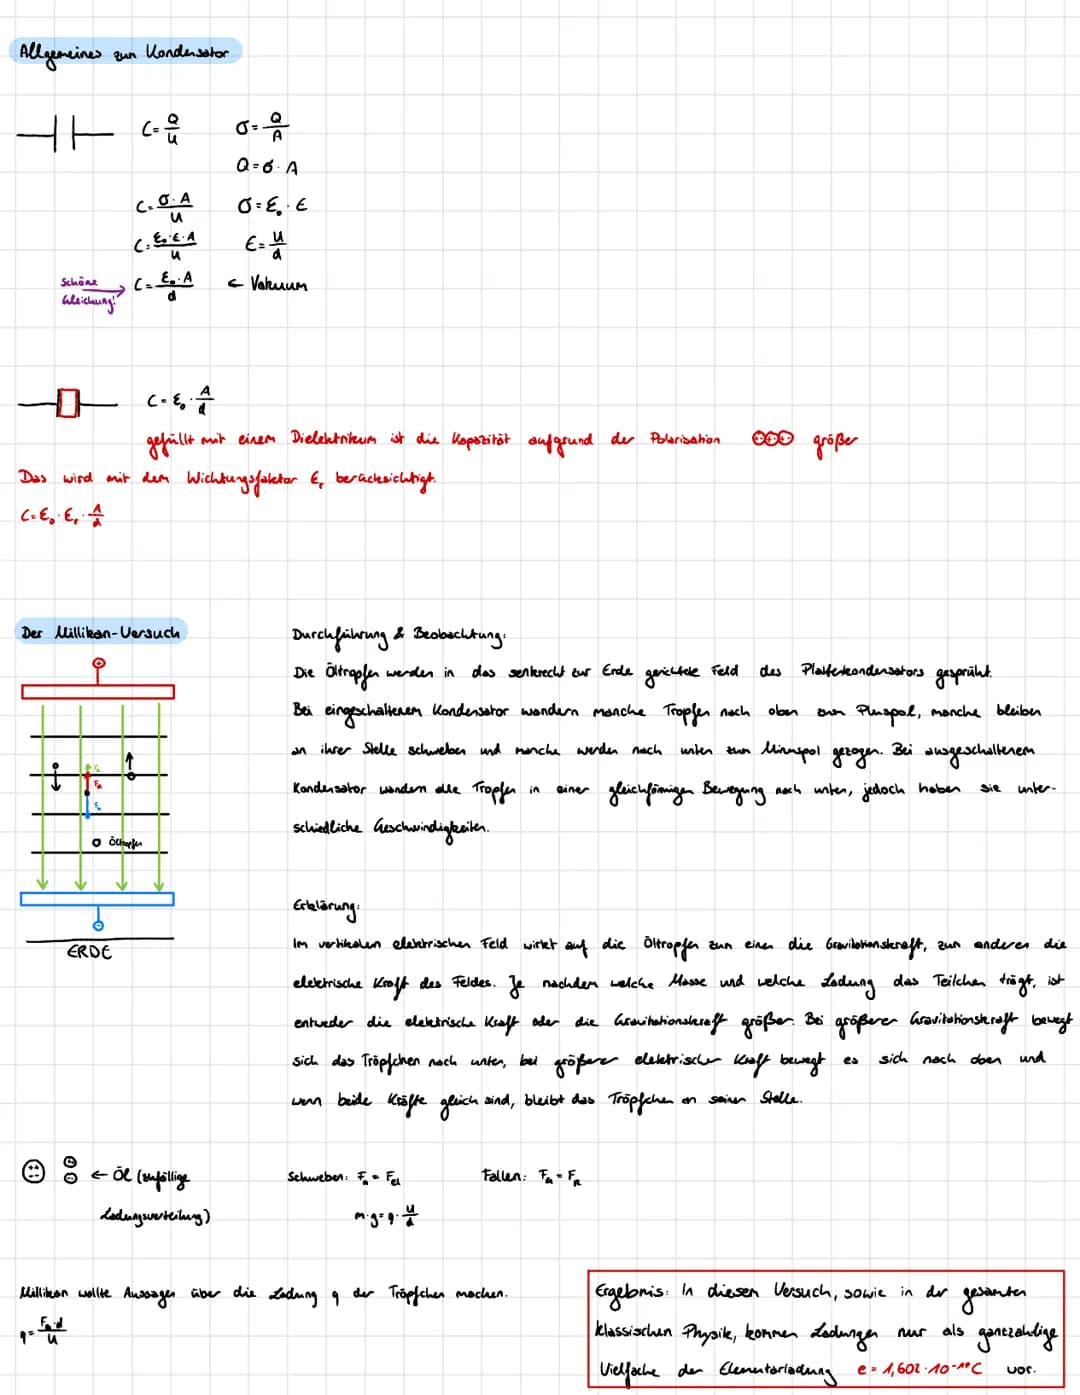 Allgemeines zum Kondensator
C = Q/U
σ = Q/A
Q = σ · A
C = σ · A/U
σ = ε₀ · E
C = ε₀ · E · A/U
E = U/d
Schöne Gleichung!
C = ε₀ · A/d
← Vakuum
C = ε₀ · A/d
gefüllt mit einem Dielektrikum ist die Kapazität aufgrund der Polarisation größer
Das wird mit dem Wichtungsfaktor εᵣ berücksichtigt.
C = ε₀ · εᵣ · A/d
Der Millikan-Versuch
Öltropfen
ERDE
Durchführung & Beobachtung:
Die Öltropfen werden in das senkrecht zur Erde gerichtete Feld des Plattenkondensators gesprüht.
Bei eingeschaltenem Kondensator wandern manche Tropfen nach oben zum Pluspol, manche bleiben
an ihrer Stelle schweben und manche werden nach unten zum Minuspol gezogen. Bei ausgeschaltenem
Kondensator wandern alle Tropfen in einer gleichförmigen Bewegung nach unten, jedoch haben sie unter-
schiedliche Geschwindigkeiten.
Erklärung:
Im vertikalen elektrischen Feld wirkt auf die Öltropfen zum einen die Gravitationskraft, zum anderen die
elektrische Kraft des Feldes. Je nachdem welche Masse und welche Ladung das Teilchen trägt, ist
entweder die elektrische Kraft oder die Gravitationskraft größer. Bei größerer Gravitationskraft bewegt
sich das Tröpfchen nach unten, bei größerer elektrischer Kraft bewegt es sich nach oben und
wenn beide Kräfte gleich sind, bleibt das Tröpfchen an seiner Stelle.
← Öl (zufällige
Ladungsverteilung)
Schweben: F_G = F_el
Fallen: F_G = F_R
m · g = q · U/d
Millikan wollte Aussagen über die Ladung q der Tröpfchen machen.
q = F_G · d/U
Ergebnis: In diesem Versuch, sowie in der gesamten
klassischen Physik, kommen Ladungen nur als ganzzahlige
Vielfache der Elementarladung e = 1,602 · 10⁻¹⁹ C vor.